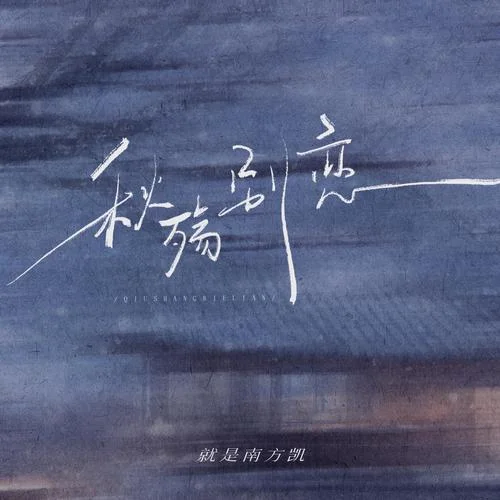 秋殇别恋
/QIUSHANGBIELIAN/
就是南方凯